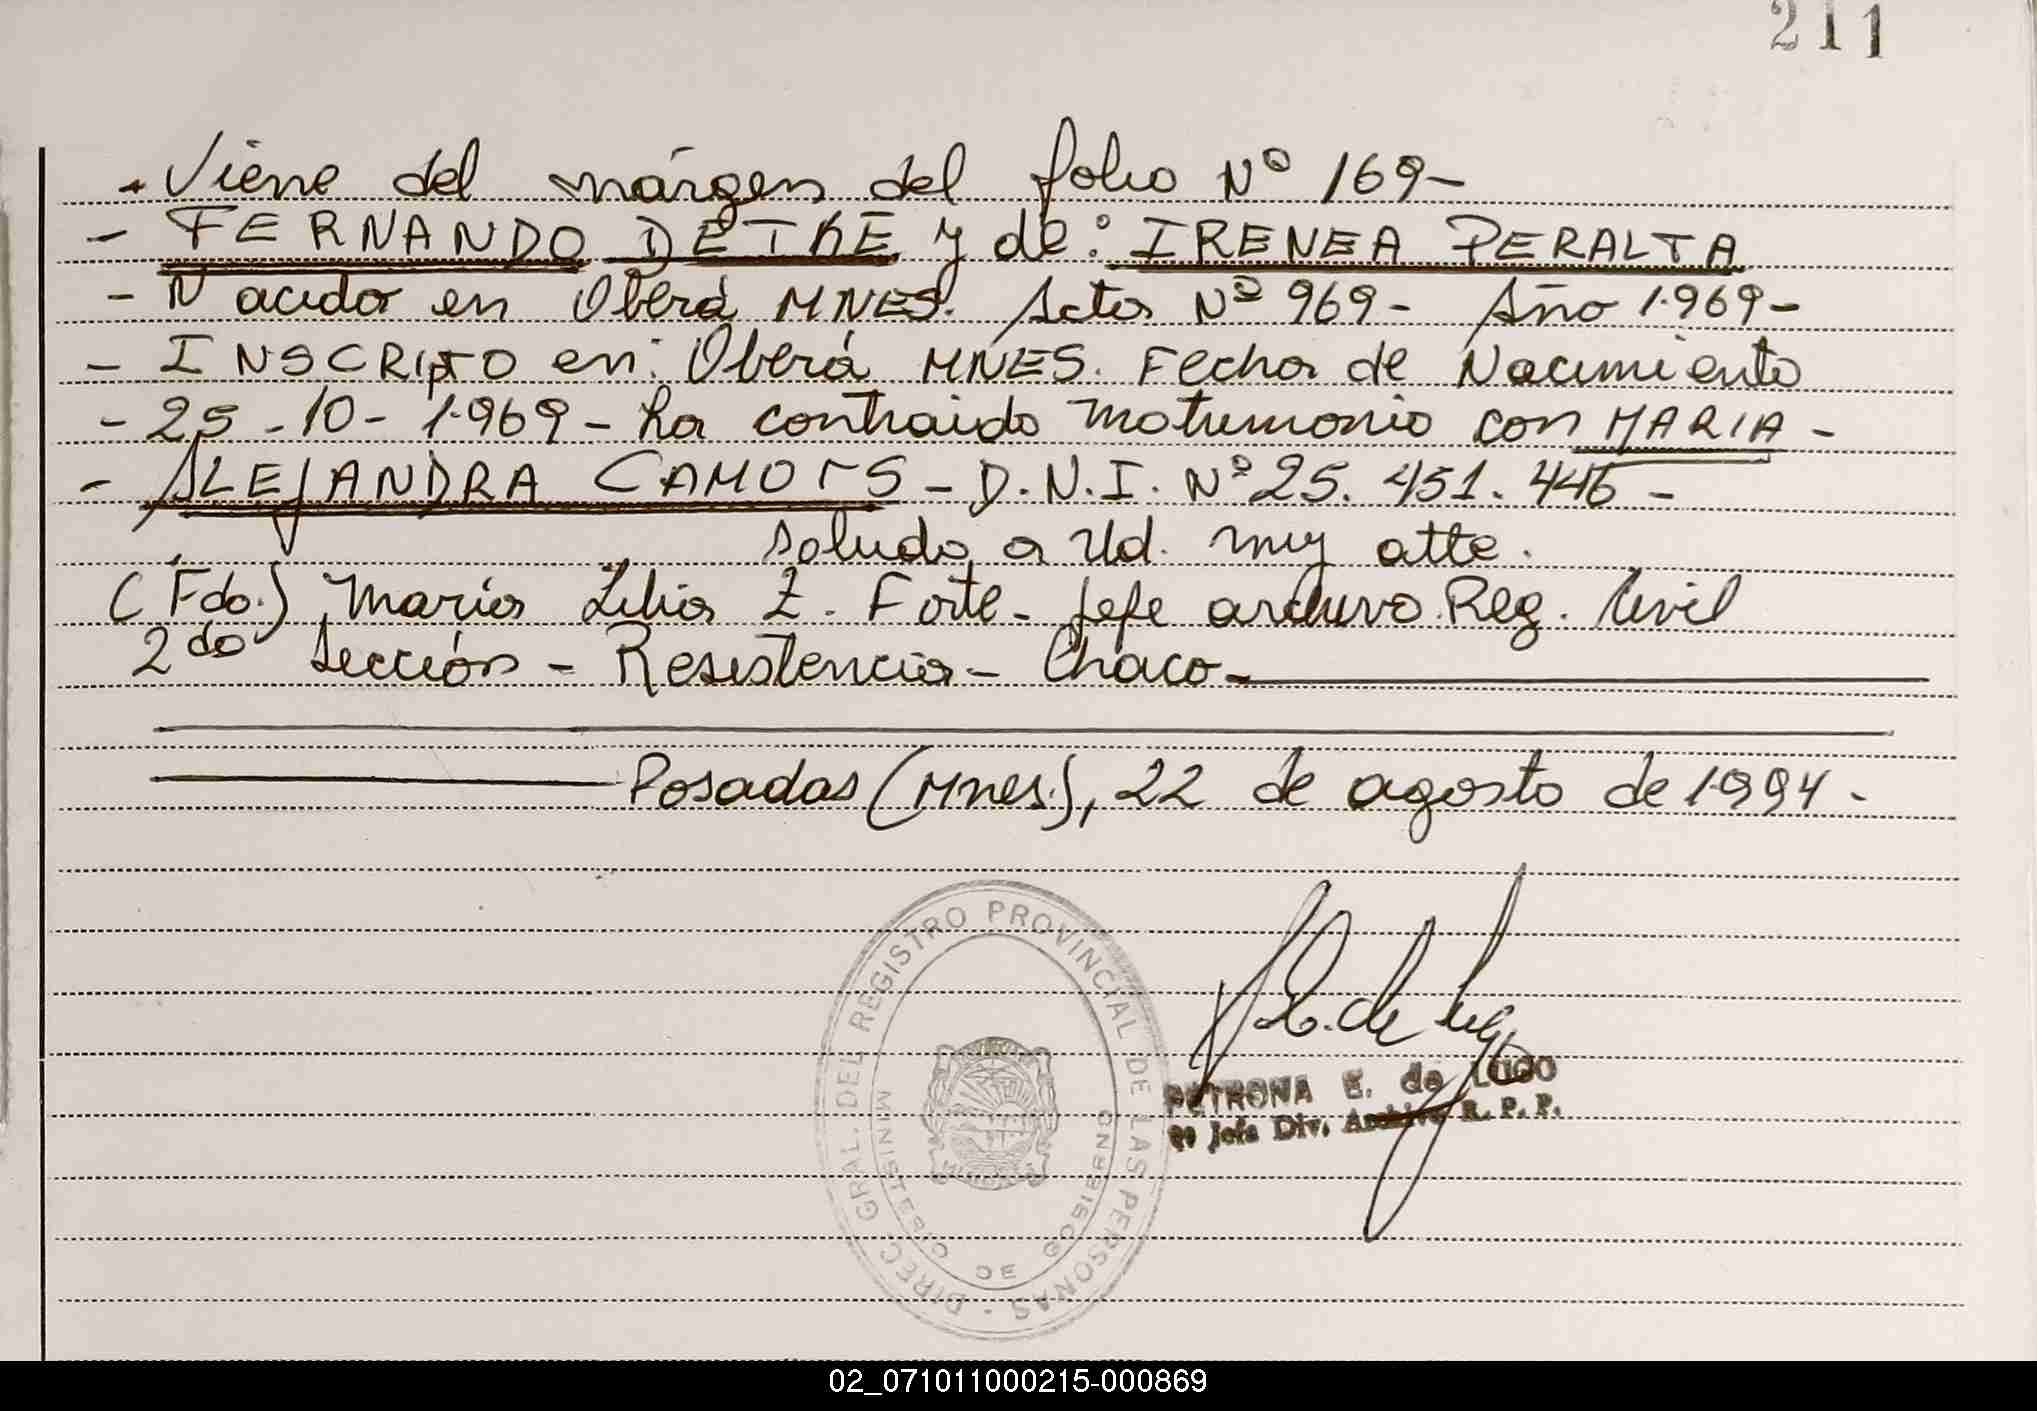 211
- Viene del márgen del folio Nº 169-
- FERNANDO DETKE y de: IRENEA PERALTA
- Nacido en Oberá MNES. Acta Nº 969- Año 1.969-
- INSCRIPTO en: Oberá MNES. Fecha de Nacimiento
- 25-10-1.969- ha contraido matrimonio con MARIA -
- ALEJANDRA CAMORS - D.N.I. Nº 25.451.446 -
Saludo a Ud. muy atte.
(Fdo.) Maria Lilia Z. Forte- Jefe archivo Reg. Civil
2do Sección - Resistencia - Chaco-
Posadas (Mnes.), 22 de agosto de 1.994-
DIREC. GRAL. DEL REGISTRO PROVINCIAL DE LAS PERSONAS -
MINISTERIO DE GOBIERNO
PETRONA E. de LUGO
Jefa Div. Archivo R. P. P.
02_071011000215-000869